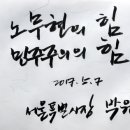 노무현의 힘
민주주의의 힘
2017. 5. 7
서울특별시장 박원